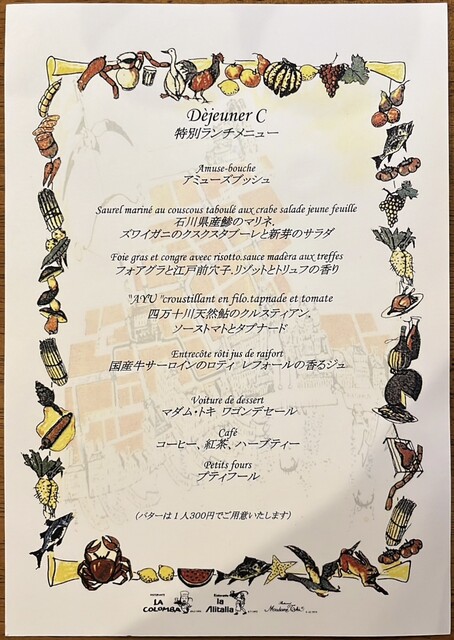 Dèjeuner C
特別ランチメニュー
Amuse-bouche
アミューズブッシュ
Saurel mariné au couscous taboulé aux crabe salade jeune feuille
石川県産鯵のマリネ,
ズワイガニのクスクスタブーレと新芽のサラダ
Foie gras et congre aveec risotto.sauce madèra aux treffes
フォアグラと江戸前穴子.リゾットとトリュフの香り
"AYU "croustillant en filo.tapnade et tomate
四万十川天然鮎のクルスティアン,
ソーストマトとタプナード
Entrecôte rôti jus de raifort
国産牛サーロインのロティ レフォールの香るジュ
Voiture de dessert
マダム・トキ ワゴンデセール
Café
コーヒー、紅茶、ハーブティー
Petits fours
プティフール
(バターは1人300円でご用意いたします)
LA COLOMBA
la Alitalia
Madame Toki